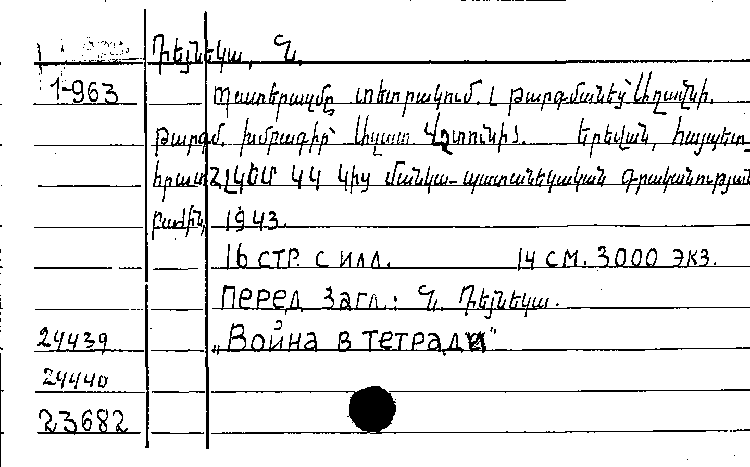 Դեյնեկա, Ն.
1-963 Պատերազմը տետրակում. [թարգմանեց՝ Աղավնի.
թարգմ. խմբագիր՝ Ազատ Վշտունի]. Երեվան, հայպետ
հրատ ՀԼԿԵՄ ԿԿ կից մանկա-պատանեկական գրականության
բաժին, 1943.
16 стр. с илл. 14 см. 3000 экз.
Перед загл.: Ն. Դեյնեկա.
24439 „Война в тетради"
24440
23682